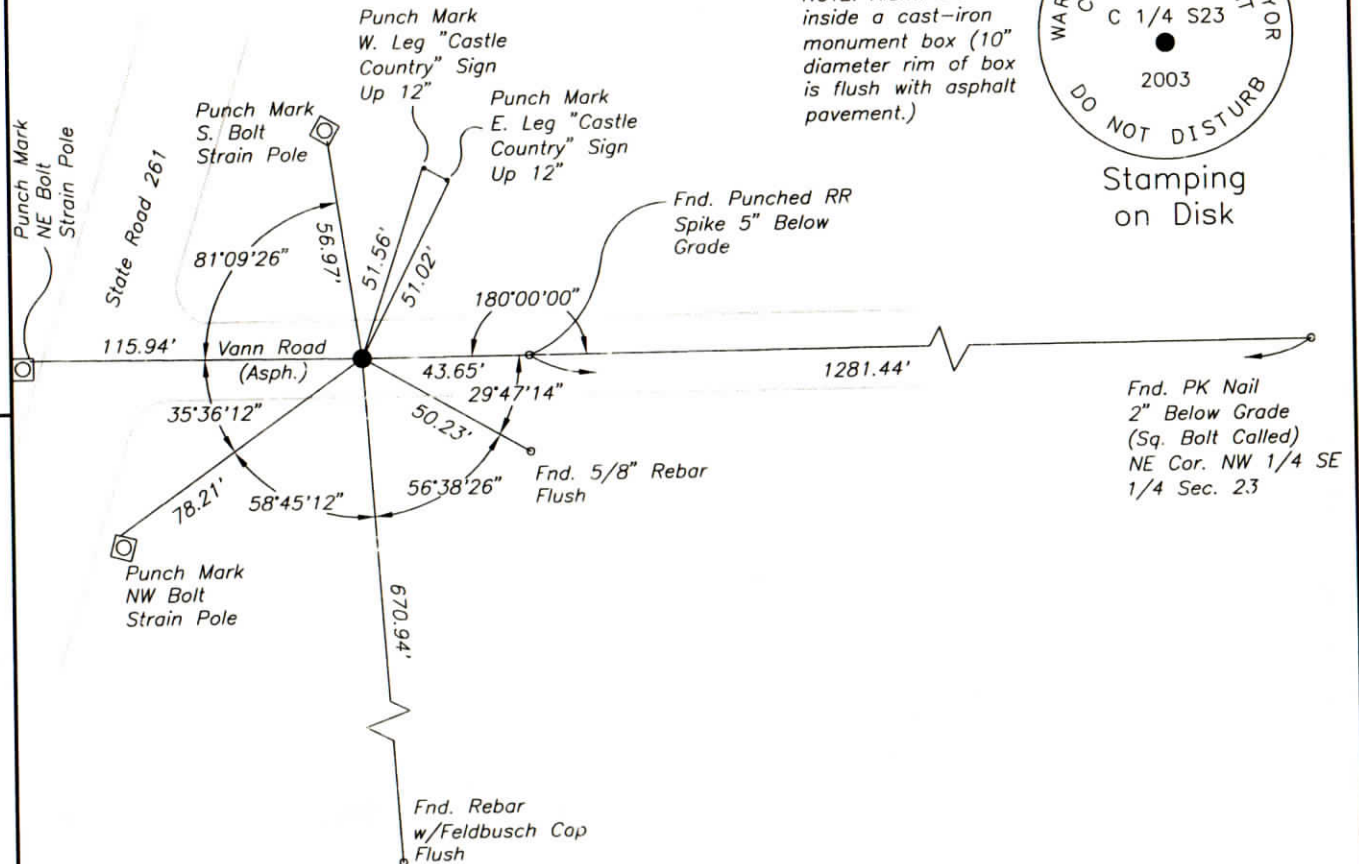 Punch Mark
W. Leg "Castle
Country" Sign
Up 12"
inside a cast-iron
monument box (10"
diameter rim of box
is flush with asphalt
pavement.)
C 1/4 S23
2003
DO NOT DISTURB
Stamping
on Disk
Punch Mark
S. Bolt
Strain Pole
Punch Mark
E. Leg "Castle
Country" Sign
Up 12"
Punch Mark
NE Bolt
Strain Pole
State Road 261
Fnd. Punched RR
Spike 5" Below
Grade
81°09'26"
56.97'
51.56'
51.02'
180°00'00"
115.94'
Vann Road
(Asph.)
43.65'
1281.44'
29°47'14"
35°36'12"
50.23'
Fnd. PK Nail
2" Below Grade
(Sq. Bolt Called)
NE Cor. NW 1/4 SE
1/4 Sec. 23
Fnd. 5/8" Rebar
Flush
78.21'
58°45'12"
56°38'26"
Punch Mark
NW Bolt
Strain Pole
670.94'
Fnd. Rebar
w/Feldbusch Cap
Flush